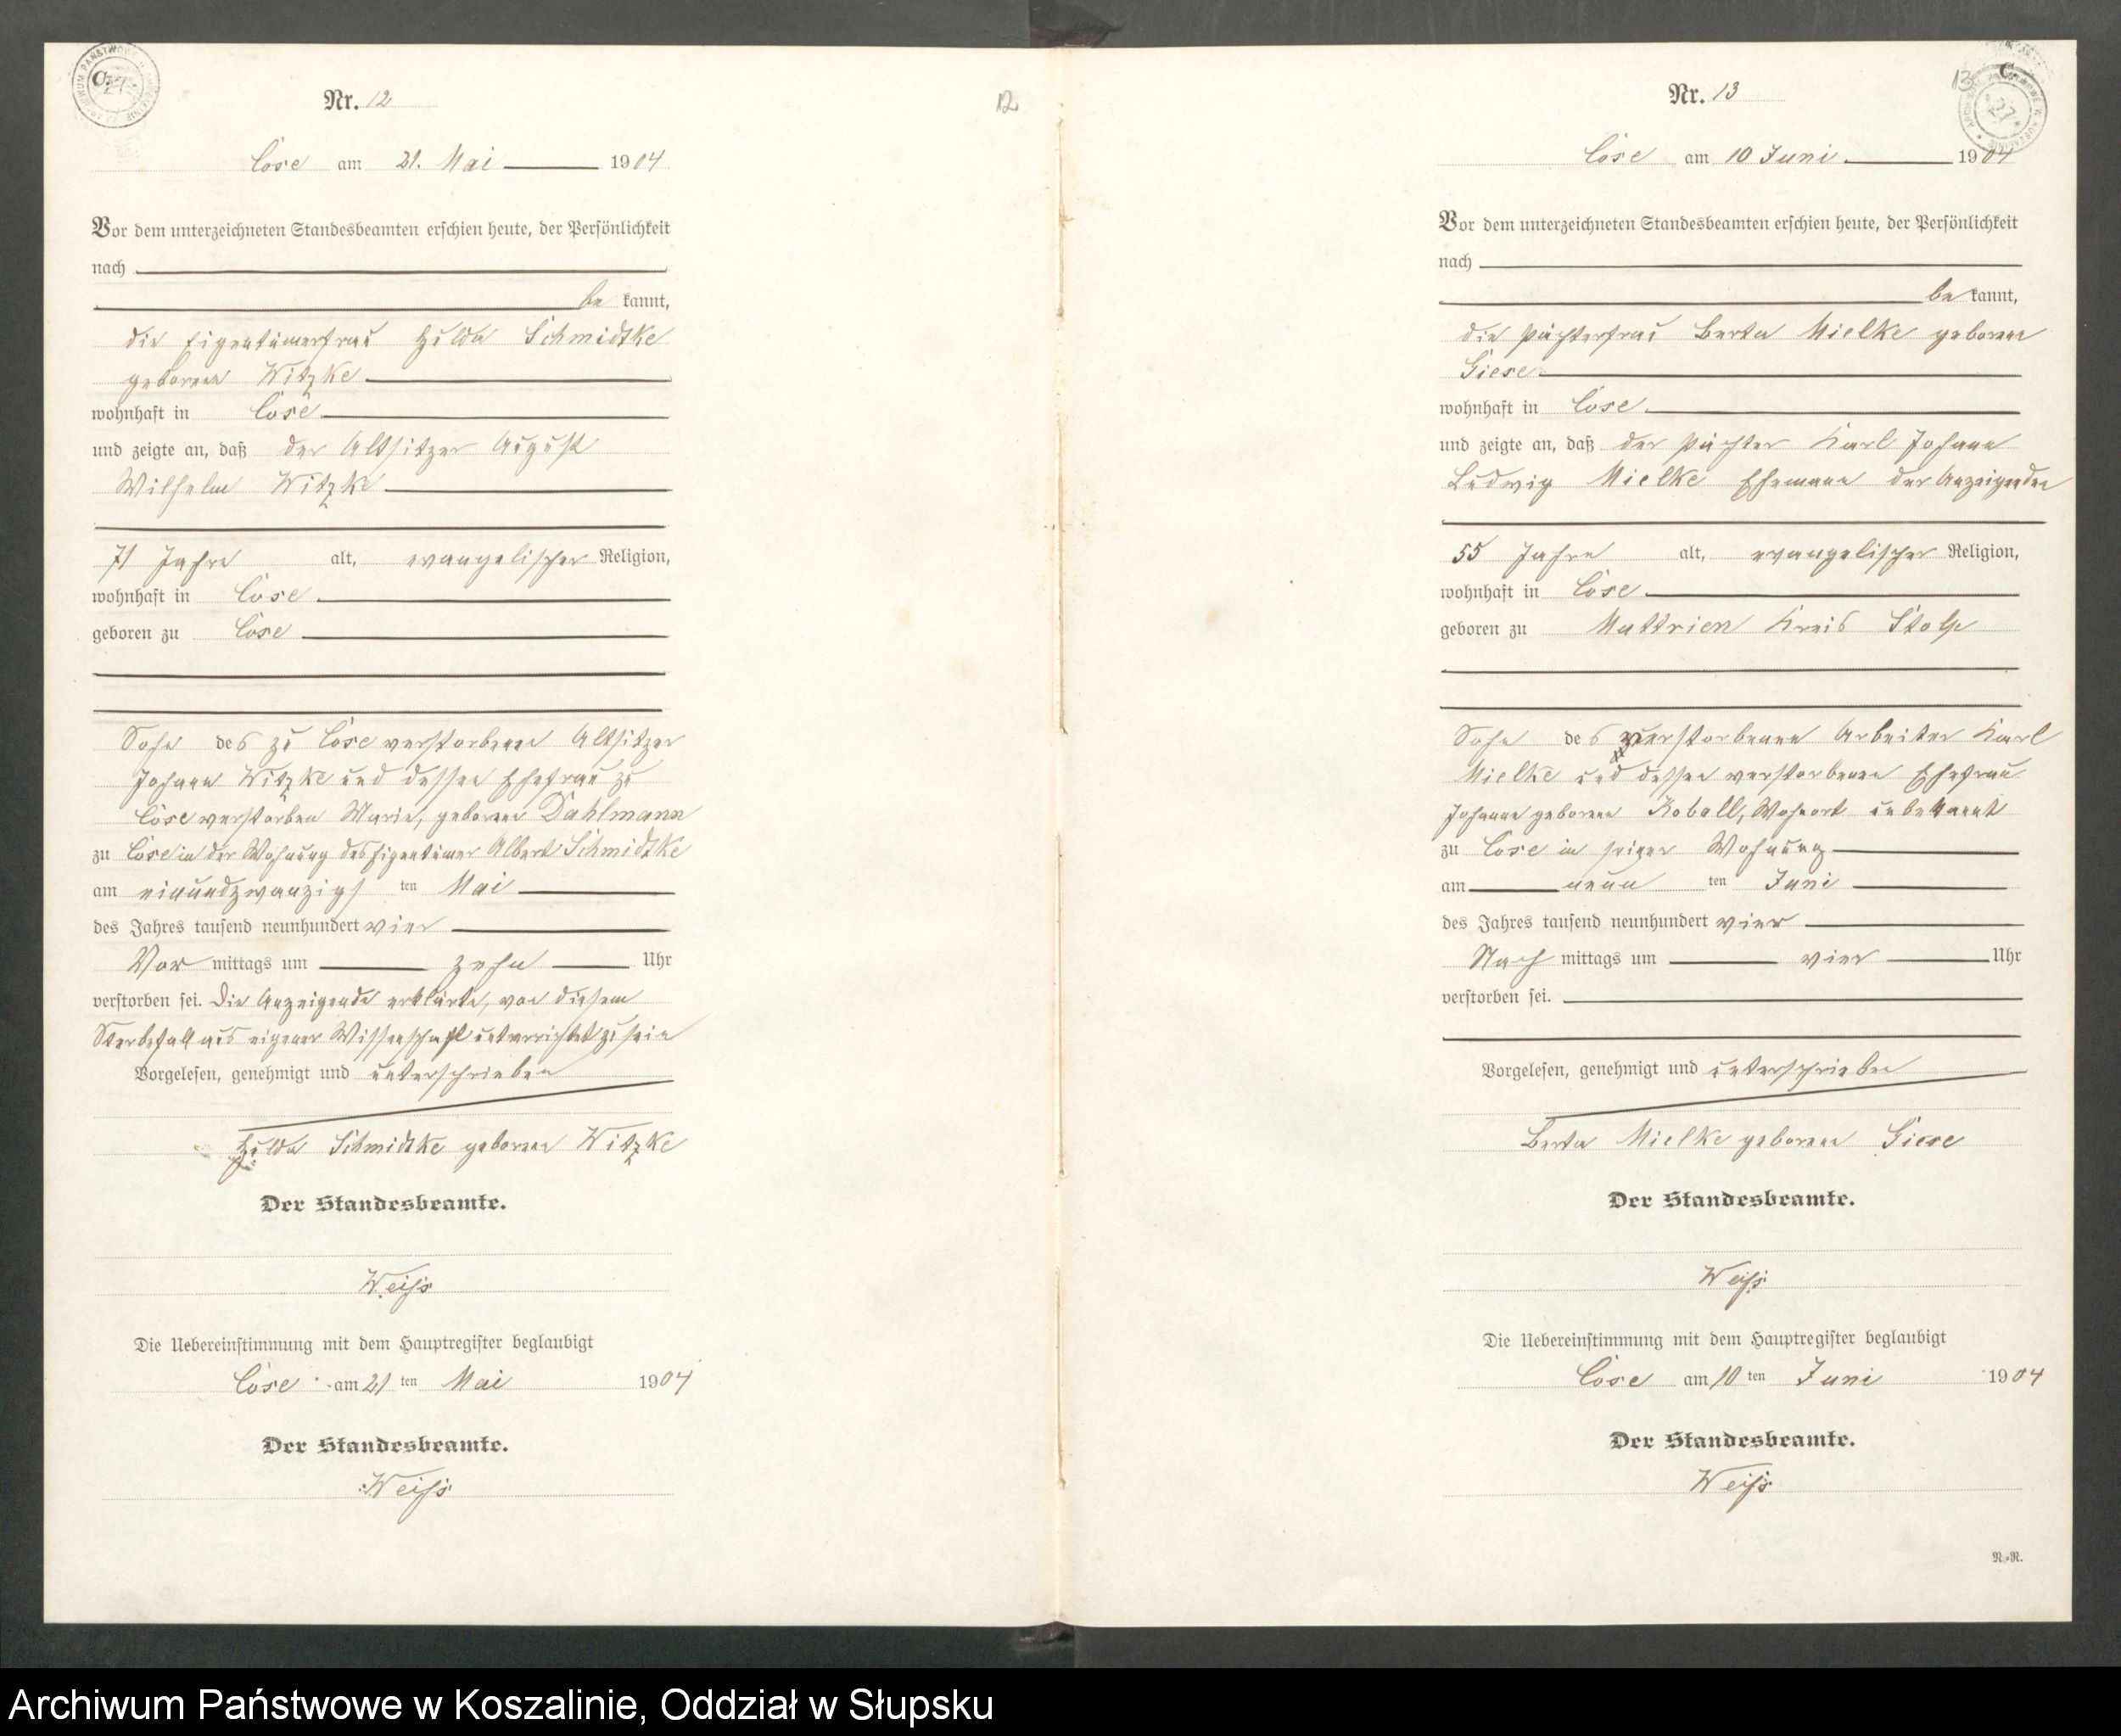 Nr. 12
Cose am 21. Mai 1904
Vor dem unterzeichneten Standesbeamten erschien heute, der Persönlichkeit
nach
be kannt,
die Eigentümerfrau Hulda Schmidtke
geborene Witzke
wohnhaft in Cose
und zeigte an, daß der Altsitzer August
Wilhelm Witzke
71 Jahre alt, evangelischer Religion,
wohnhaft in Cose
geboren zu Cose
Sohn des zu Cose verstorbenen Altsitzer
Johann Witzke und dessen Ehefrau zu
Cose verstorben Marie, geborene Dahlmann
zu Cose in der Wohnung des Eigentümer Albert Schmidtke
am einundzwanzigs ten Mai
des Jahres tausend neunhundert vier
Vor mittags um zehn Uhr
verstorben sei. Die Anzeigende erklärte, von diesem
Sterbefall aus eigener Wissenschaft unterrichtet zu sein
Vorgelesen, genehmigt und unterschrieben
Hulda Schmidtke geborene Witzke
Der Standesbeamte.
Weiß
Die Uebereinstimmung mit dem Hauptregister beglaubigt
Cose am 21 ten Mai 1904
Der Standesbeamte.
Weiß
12
13
Nr. 13
Cose am 10 Juni 1904
Vor dem unterzeichneten Standesbeamten erschien heute, der Persönlichkeit
nach
be kannt,
die Pächterfrau Berta Mielke geborene
Giese
wohnhaft in Cose
und zeigte an, daß der Pächter Karl Johann
Ludwig Mielke Ehemann der Anzeigenden
55 Jahre alt, evangelischer Religion,
wohnhaft in Cose
geboren zu Muttrien Kreis Stolp
Sohn des verstorbenen Arbeiter Karl
Mielke und dessen verstorbenen Ehefrau
Johanne geborene Koball, Wohnort unbekannt
zu Cose in seiner Wohnung
am neun ten Juni
des Jahres tausend neunhundert vier
Nach mittags um vier Uhr
verstorben sei.
Vorgelesen, genehmigt und unterschrieben
Berta Mielke geborene Giese
Der Standesbeamte.
Weiß
Die Uebereinstimmung mit dem Hauptregister beglaubigt
Cose am 10 ten Juni 1904
Der Standesbeamte.
Weiß
N.-N.
Archiwum Państwowe w Koszalinie, Oddział w Słupsku